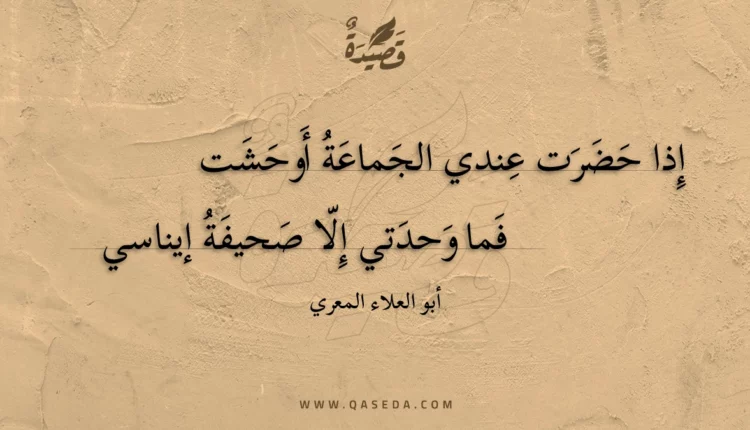 قَصيدَةٌ
إِذا حَضَرَت عِندي الجَماعَةُ أَوحَشَت
فَما وَحدَتي إِلّا صَحيفَةُ إيناسي
أبو العلاء المعري
WWW.QASEDA.COM